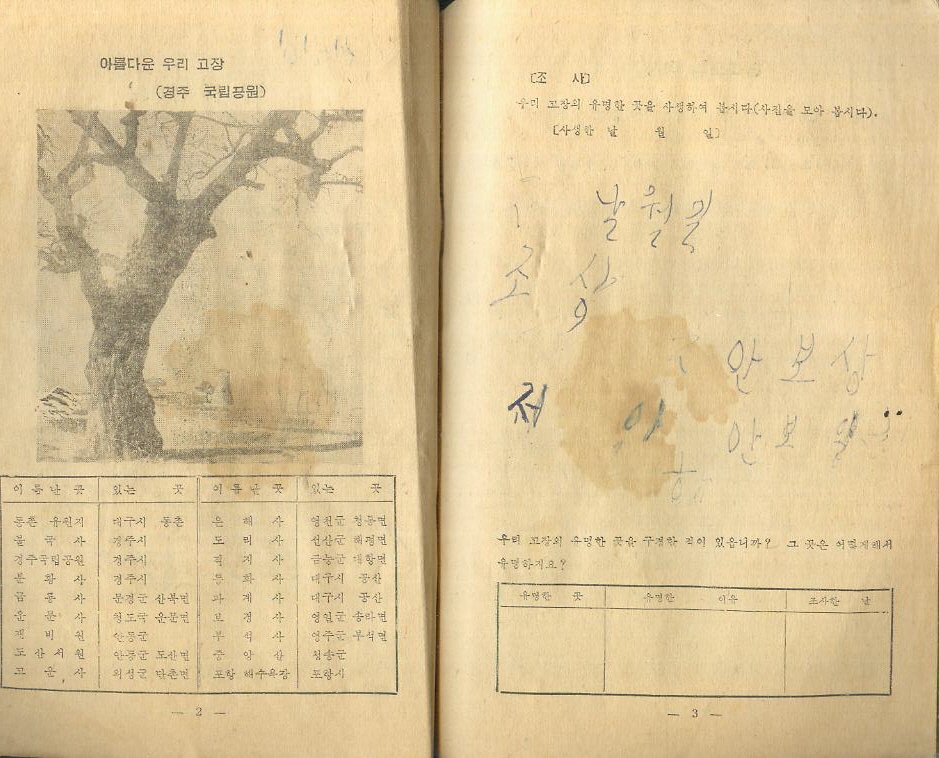 아름다운 우리 고장
(경주 국립공원)
이름난 곳 있는 곳 이름난 곳 있는 곳
동촌 유원지 대구시 동촌 은 해 사 영천군 청통면
불 국 사 경주시 도 리 사 선산군 해평면
경주국립공원 경주시 직 지 사 금능군 대항면
분 황 사 경주시 동 화 사 대구시 공산
금 룡 사 문경군 산북면 파 계 사 대구시 공산
운 문 사 청도군 운문면 보 경 사 영일군 송라면
제 비 원 안동군 부 석 사 영주군 부석면
도 산 서 원 안동군 도산면 주 왕 산 청송군
고 운 사 의성군 단촌면 포항 해수욕장 포항시
— 2 —
[조 사]
우리 고장의 유명한 곳을 사생하여 봅시다(사진을 모아 봅시다).
[사생한 날 월 일]
날 월
조 상
안 보 상
저
안 보
우리 고장의 유명한 곳을 구경한 적이 있읍니까? 그 곳은 어떻게해서
유명하지요?
유명한 곳 유명한 이유 조사한 날
— 3 —